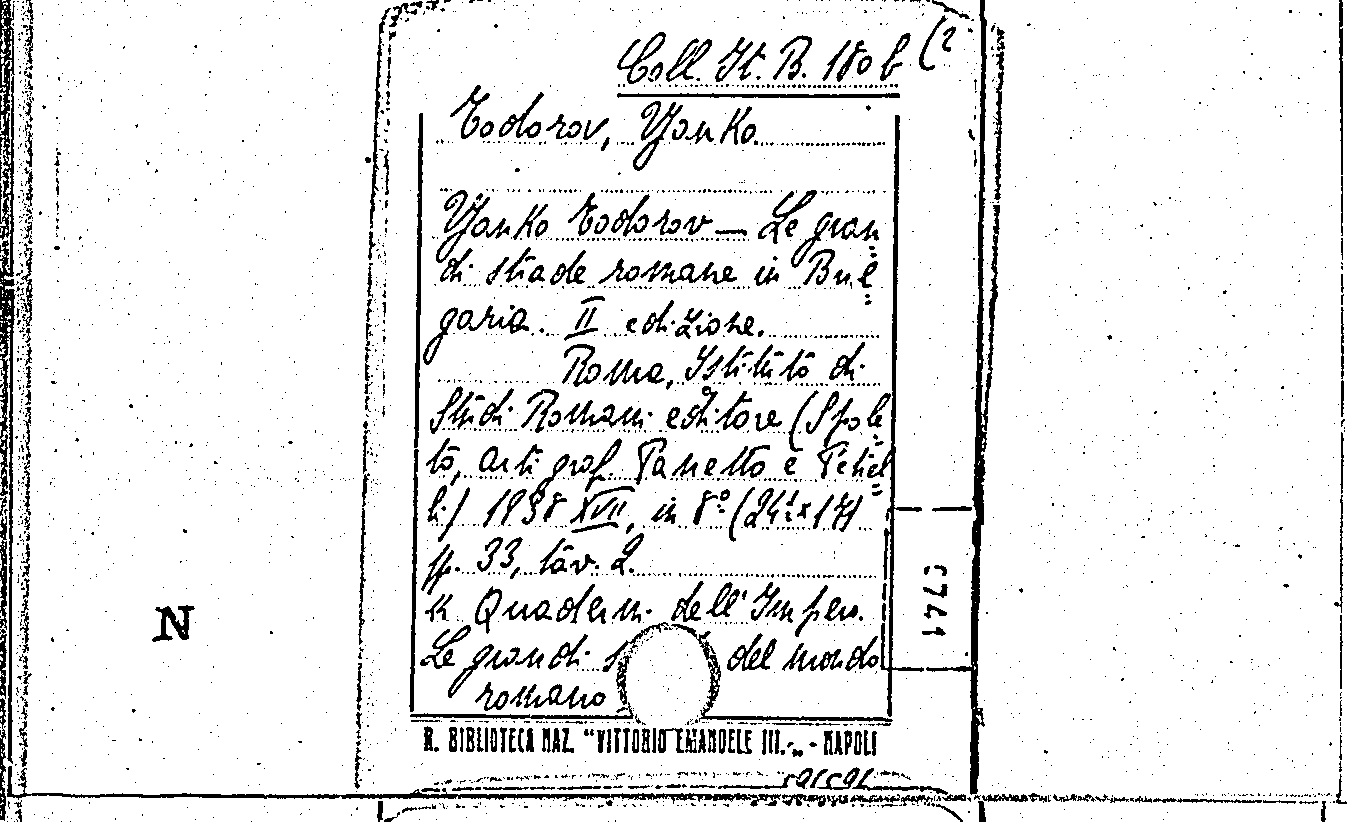 Coll. It. B. 180 b (2
Todorov, Yanko.
Yanko Todorov — Le gran=
di strade romane in Bul=
garia. II edizione.
Roma, Istituto di
Studi Romani editore (Spole=
to, arti graf. Panetto e Petrel=
li) 1938 XVII, in 8° (24½ x 17)
pp. 33, tav. 2.
« Quaderni dell'Impero.
Le grandi del mondo
romano
R. BIBLIOTECA NAZ. "VITTORIO EMANUELE III.„ - NAPOLI
N